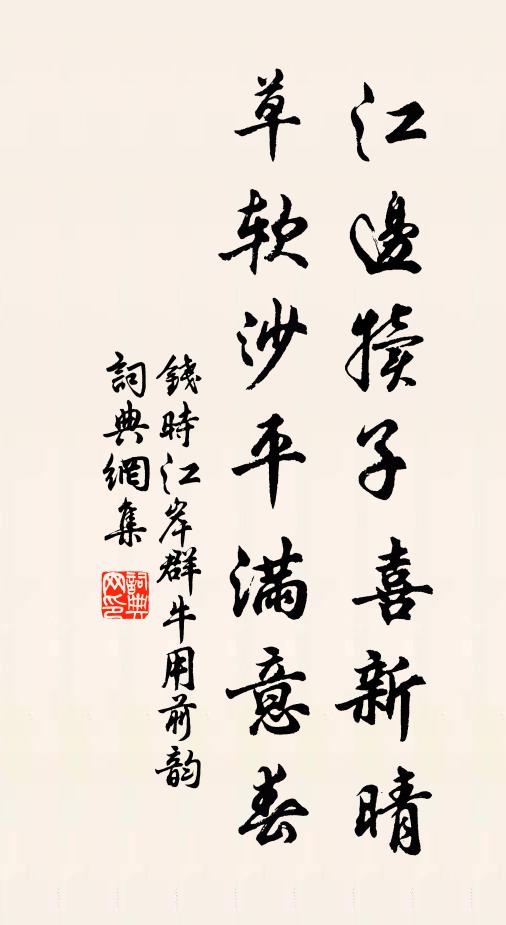 江邊犢子喜新晴
草軟沙平滿意春
錢時江岸群牛用前韵
詞典網集
詞典网印